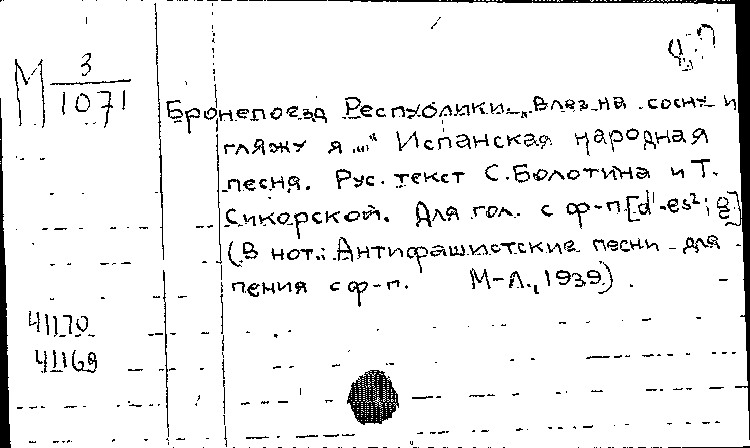 М 3/1071
Бронепоезд Республики. „Влез на сосну и
гляжу я..." Испанская народная
песня. Рус. текст С. Болотина и Т.
Сикорской. Для гол. с ф-п [d¹-es²; g]
(В нот.: Антифашистские песни для
пения с ф-п. М-Л., 1939).
41170
41169